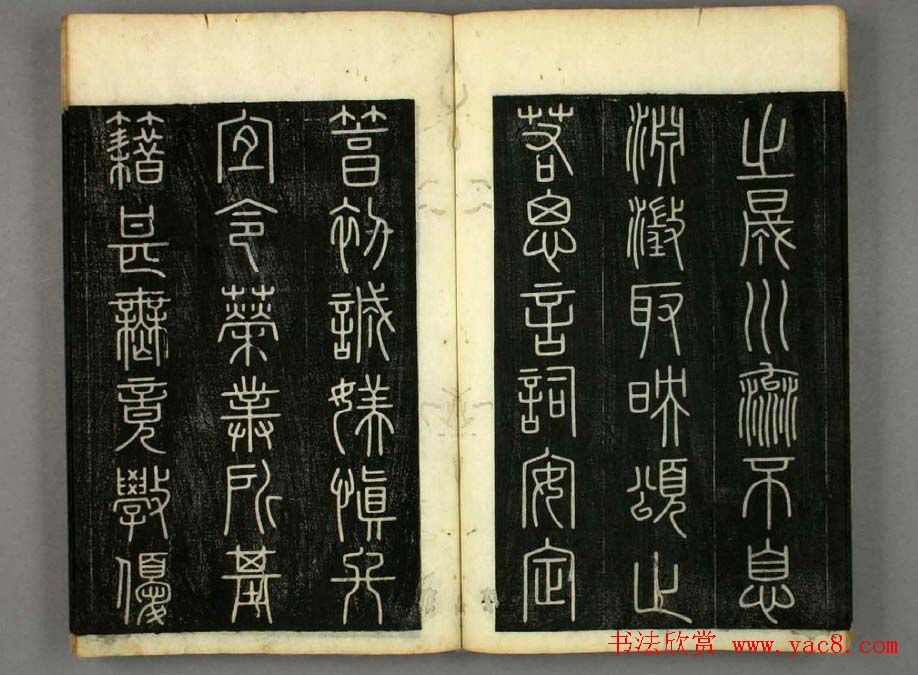 之晟川流不息
淵澂取映頌止
若思言詞安定
䈞初誠媄慎終
宜令榮業所基
籍甚無竟斆優
书法欣赏 www.yac8.com